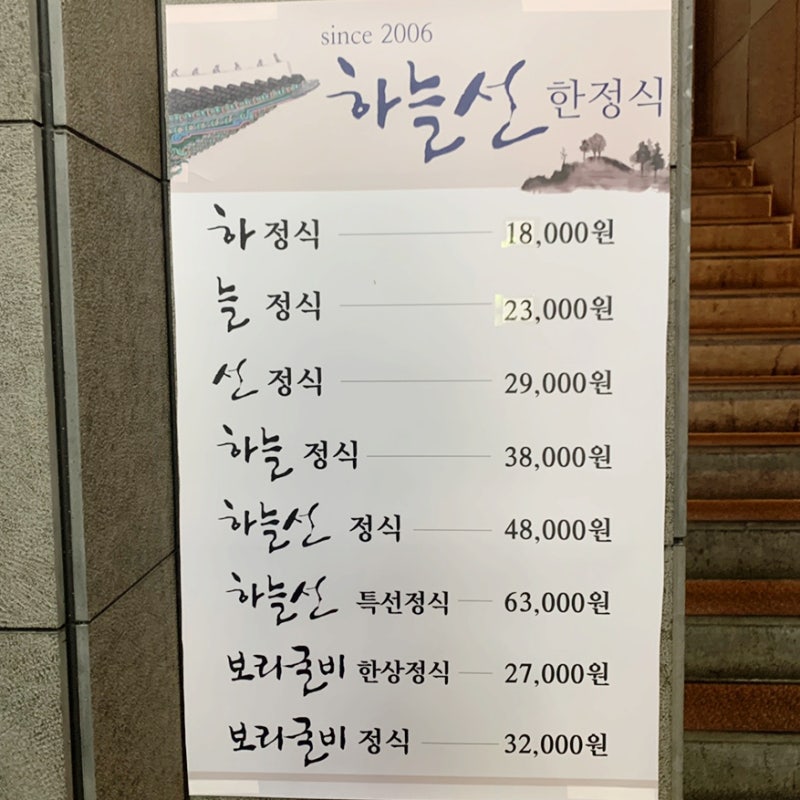 since 2006
하늘선 한정식
하 정식 18,000원
늘 정식 23,000원
선 정식 29,000원
하늘 정식 38,000원
하늘선 정식 48,000원
하늘선 특선정식 63,000원
보리굴비 한상정식 27,000원
보리굴비 정식 32,000원